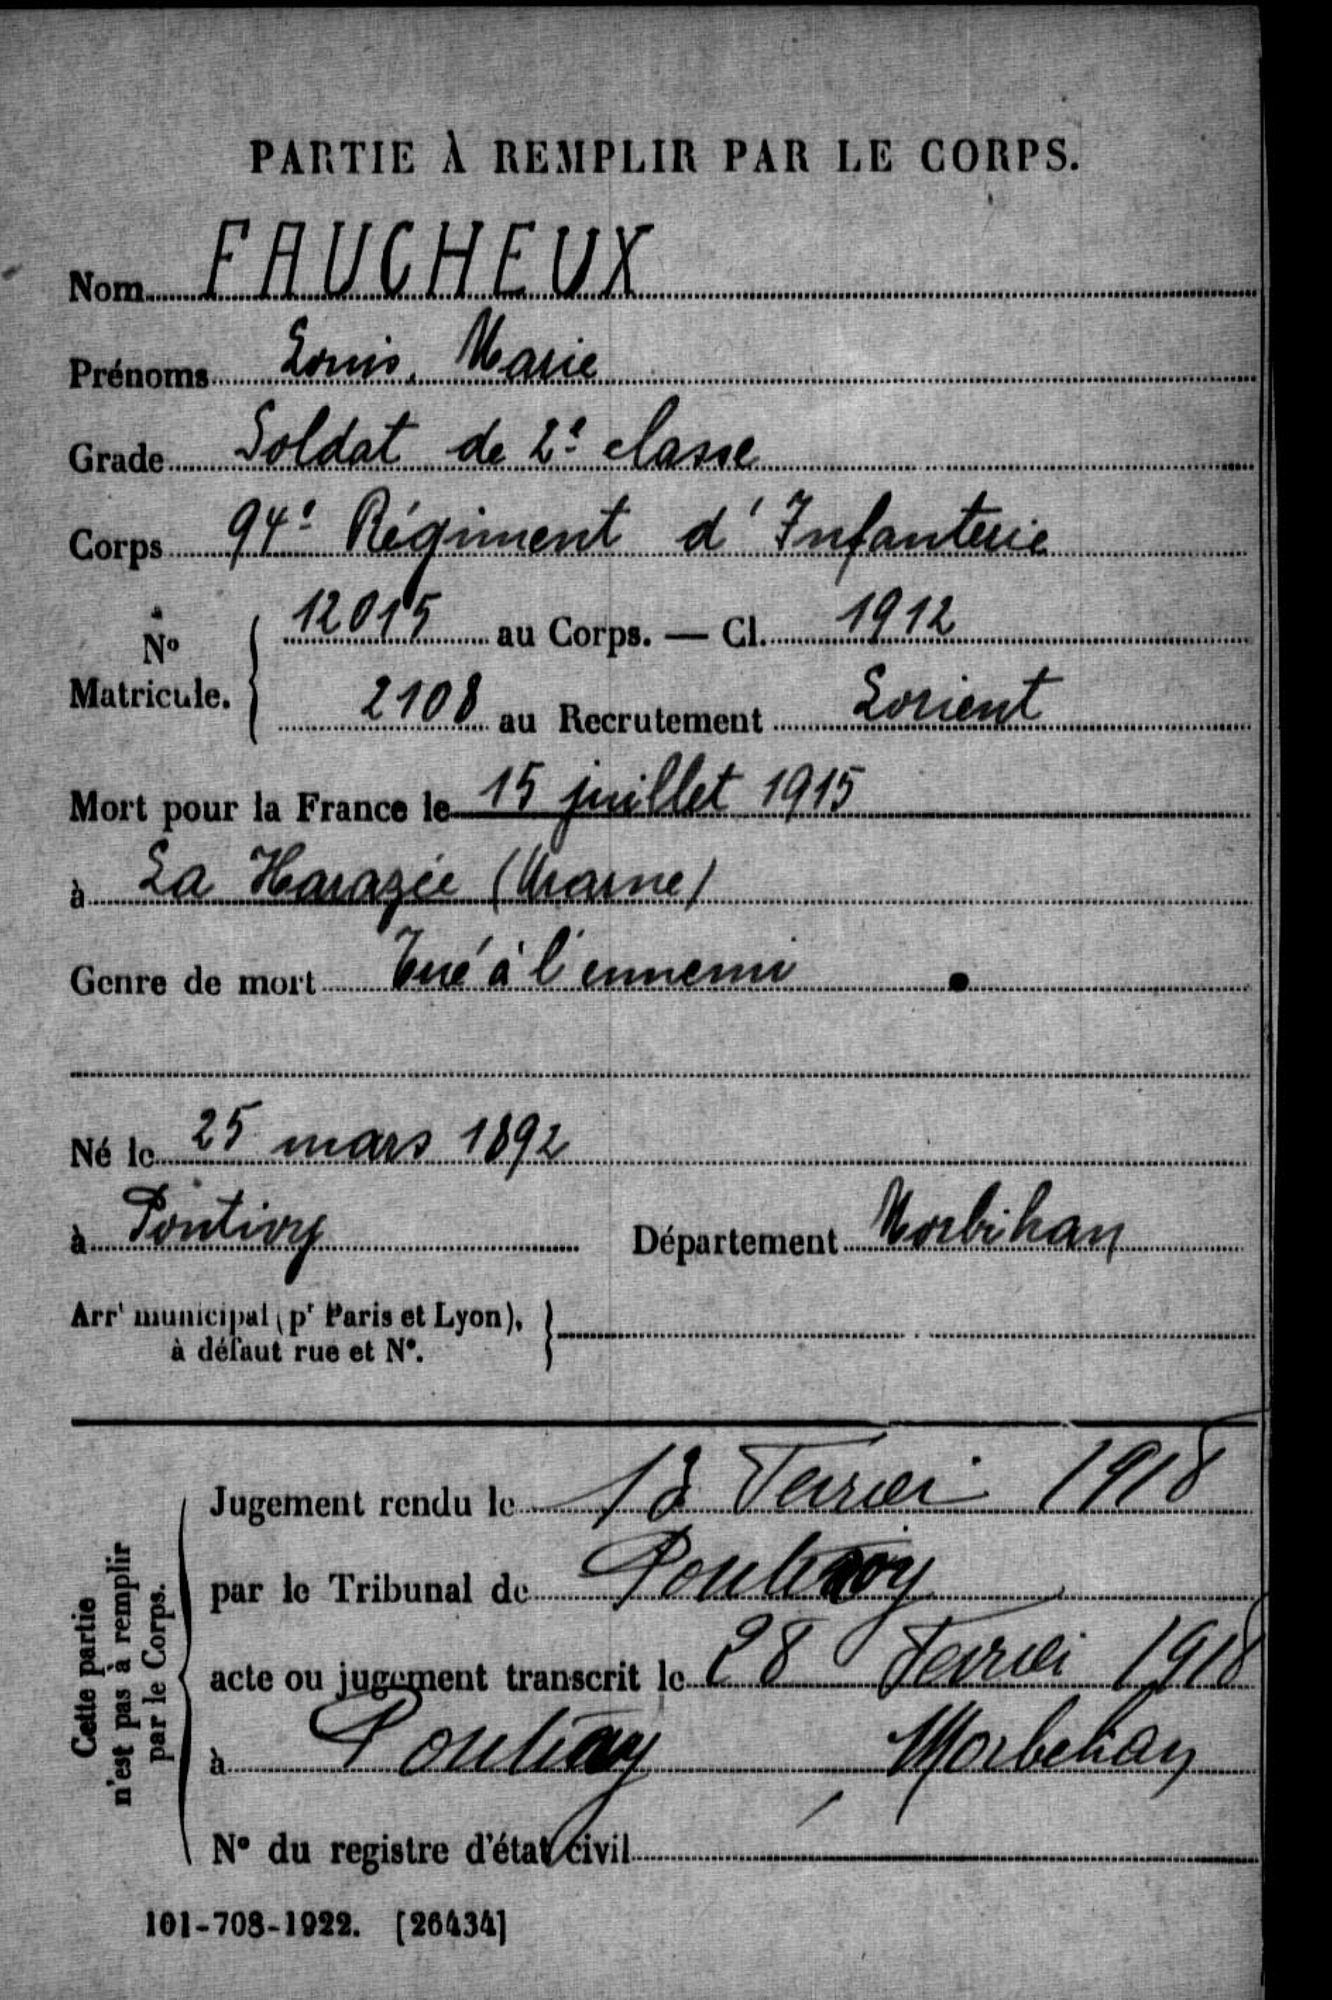 PARTIE À REMPLIR PAR LE CORPS.
Nom FAUCHEUX
Prénoms Louis, Marie
Grade Soldat de 2e classe
Corps 94e Régiment d'Infanterie
No Matricule. { 12015 au Corps. — Cl. 1912
2108 au Recrutement Lorient
Mort pour la France le 15 juillet 1915
à La Harazée (Marne)
Genre de mort Tué à l'ennemi
Né le 25 mars 1892
à Pontivy Département Morbihan
Arrt municipal (pr Paris et Lyon), }
à défaut rue et No.
Cette partie
n'est pas à remplir
par le Corps.
Jugement rendu le 13 1918
par le Tribunal de Pontivy
acte ou jugement transcrit le 28 1918
à Pontivy Morbihan
No du registre d'état civil
101-708-1922. [26434]